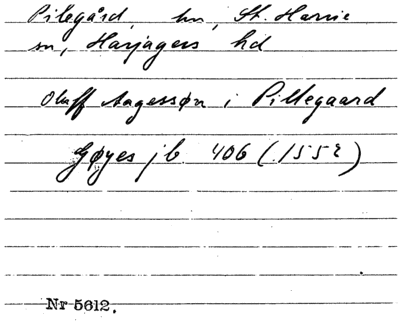 Pilegård, hn, St. Harrie
sn, Harjagers hd
Oluff Aagessøn i Pillegaard
Gøyes jb 406 (1552)
Nr 5612.